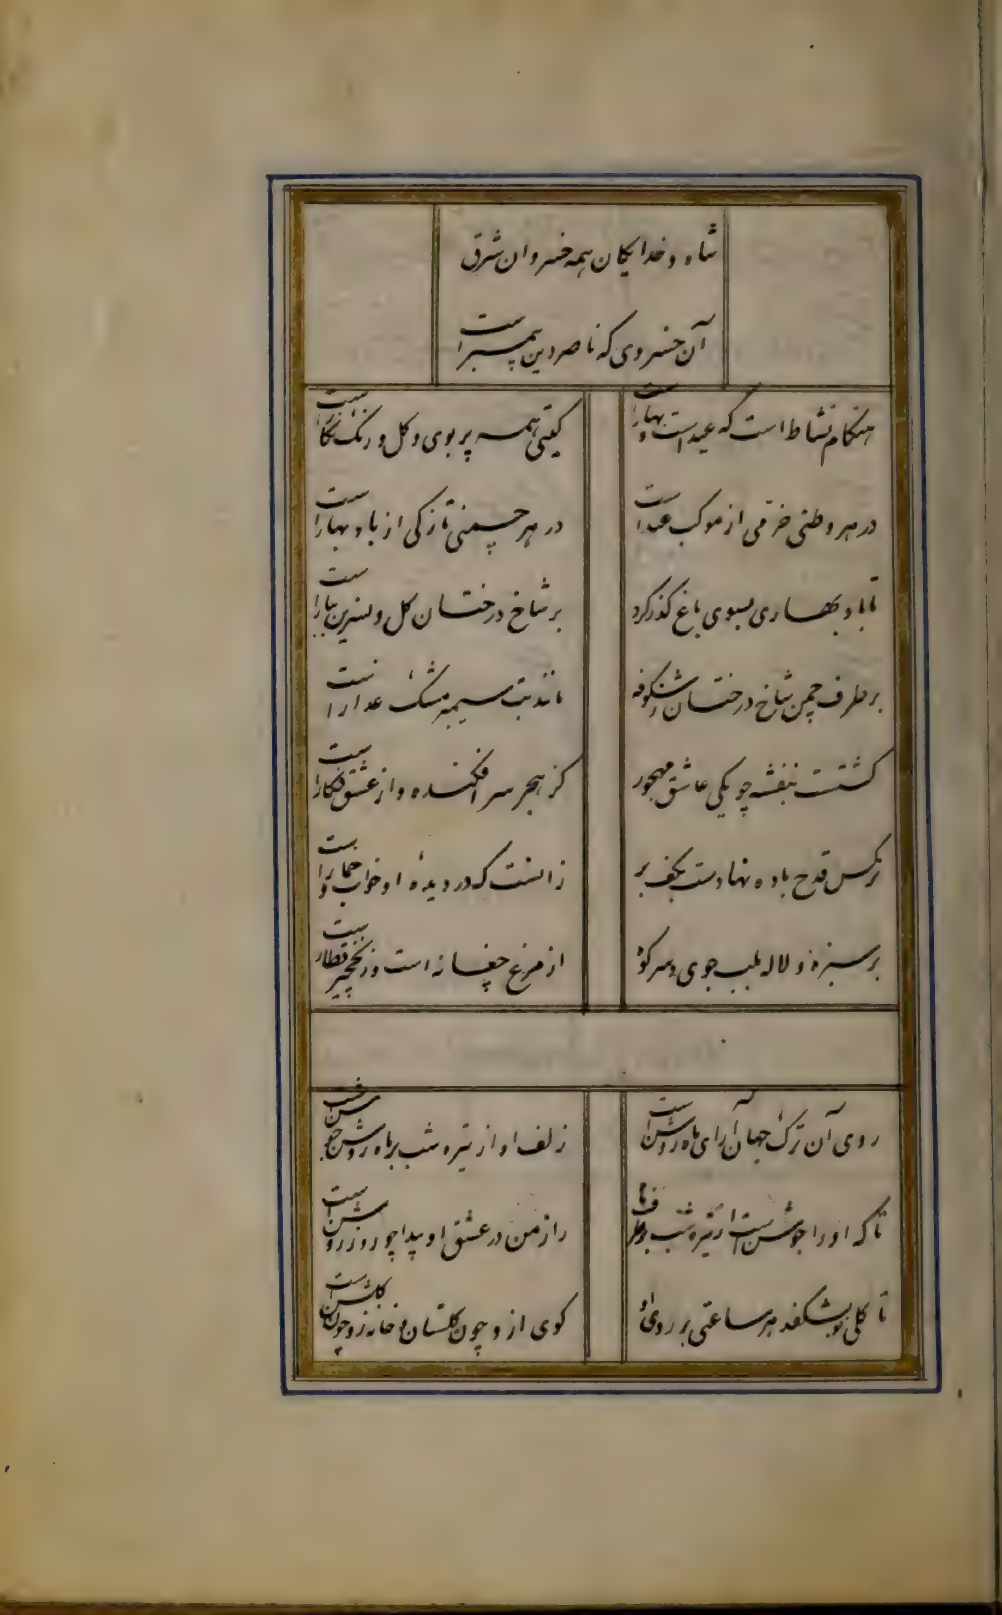 شاه و خدایکان همه خسروان شرق
آن خسروی که ناصر دین پیمبر است
هنکام نشاط است که عید است و بهار است
کیتی همه پر بوی و کل و رنک نکار است
در هر وطنی خرمی از موکب عید است
در هر چمنی تازکی از باد بهار است
تا باد بهاری بسوی باغ کذر کرد
بر شاخ درختان کل و نسرین ببار است
بر طرف چمن شاخ درختان ز شکوفه
مانند بت سیمبر مشک عذار است
کشتست بنفشه چو یکی عاشق مهجور
کز هجر سر افکنده و از عشق فکار است
نرکس قدح باده نهادست بکف بر
زانست که در دیده او خواب و خمار است
بر سبزه و لاله بلب جوی و سر کوه
از مرغ چغانه است و ز نخچیر قطار است
روی آن ترک جهان آرای ماه روشن است
زلف او از تیره شب بر ماه روشن جوشن است
تا که او را جوشن است از تیره شب بر طرف ماه
راز من در عشق او پیدا چو روز روشن است
تا کلی نو بشکفد هر ساعتی بر روی او
کوی ازو چون کلستان و خانه زو چون کلشن است